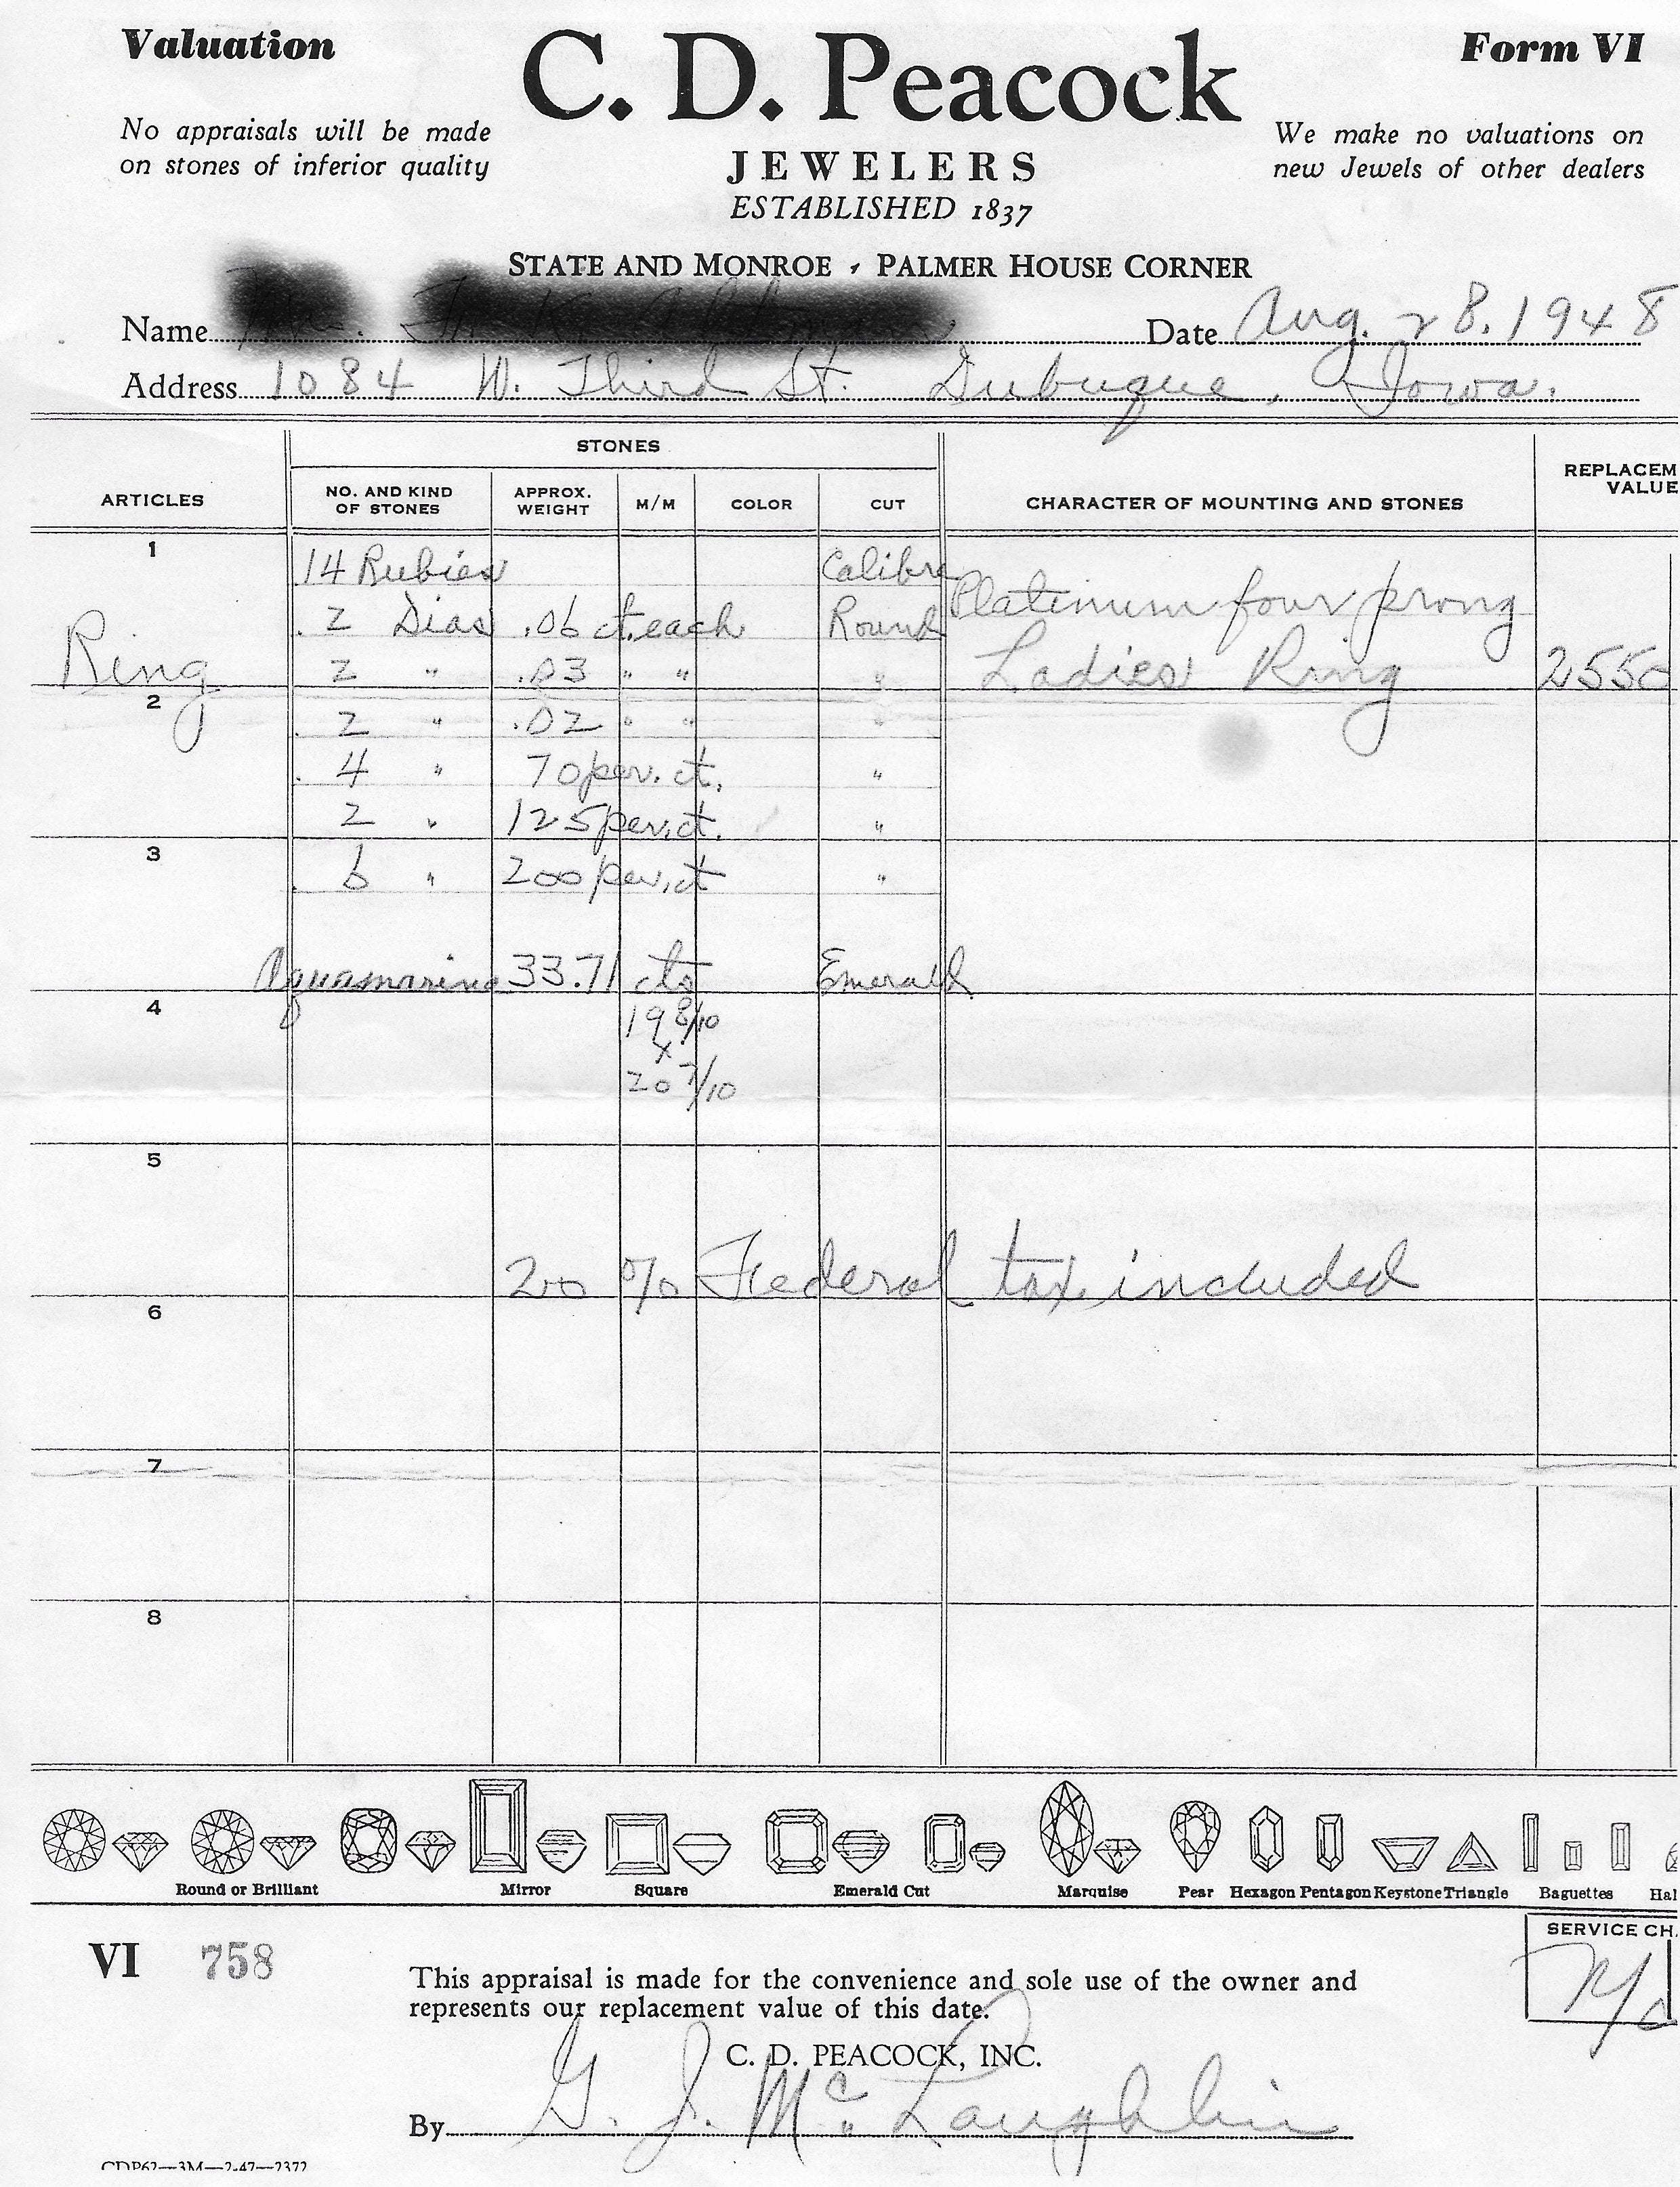 Valuation
Form VI
C. D. Peacock
No appraisals will be made
on stones of inferior quality
We make no valuations on
new Jewels of other dealers
JEWELERS
ESTABLISHED 1837
STATE AND MONROE , PALMER HOUSE CORNER
Name Date Aug. 28. 1948
Address 1084 W. Third St. Dubuque, Iowa.
STONES
ARTICLES
NO. AND KIND
OF STONES
APPROX.
WEIGHT
M/M
COLOR
CUT
CHARACTER OF MOUNTING AND STONES
REPLACEM
VALUE
1
14 Rubies Calibre
Platinum four prong
2 Dias .06 ct. each Round
Ring 2 " .03 " " " Ladies Ring 2550
2
2 " .02 " " "
4 " 70 per. ct. "
2 " 125 per. ct. "
3
6 " 200 per. ct "
Aquamarine 33.71 cts Emerald
4
19 8/10
x
20 7/10
5
20 % Federal tax included
6
7
8
Round or Brilliant Mirror Square Emerald Cut Marquise Pear Hexagon Pentagon Keystone Triangle Baguettes Hal
SERVICE CH
VI 758
This appraisal is made for the convenience and sole use of the owner and
represents our replacement value of this date.
C. D. PEACOCK, INC.
By G. J. McLaughlin
CDP62—3M—2-47—2372